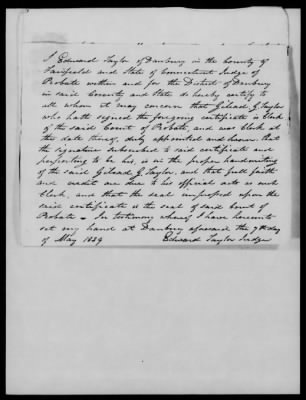 I Edward Taylor of Danbury in the County of
Fairfield and State of Connecticut Judge of
Probate within and for the District of Danbury
in said County and State do hereby certify to
all whom it may concern that Gilead G. Taylor
who hath signed the foregoing certificate is Clerk
of the said Court of Probate, and was Clerk at
the date thereof, duly appointed and sworn that
the signature subscribed to said certificate and
purporting to be his, is in the proper handwriting
of the said Gilead G. Taylor, and that full faith
and credit are due to his official acts as such
Clerk, and that the seal impressed upon the
said certificate is the seal of said Court of
Probate - In testimony whereof I have hereunto
set my hand at Danbury aforesaid the 7th day
of May 1839 Edward Taylor Judge